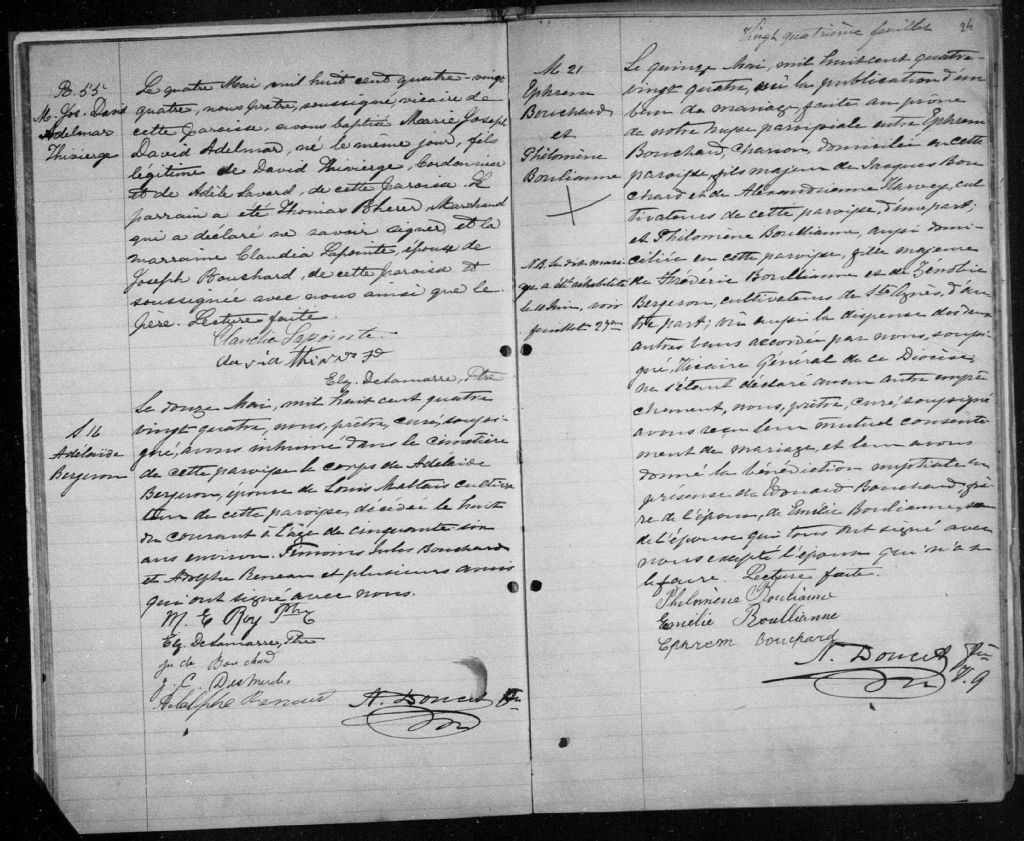 B. 55
M. Jos. David
Adelmar
Thivierge
Le quatre Mai mil huit cent quatre-vingt
quatre, nous prêtre, soussigné, vicaire de
cette Paroisse, avons baptisé Marie Joseph
David Adelmar, né le même jour, fils
légitime de David Thivierge, Cordonnier
et de Adèle Savard, de cette Paroisse. Le
parrain a été Thomas Bherer, Marchand
qui a déclaré ne savoir signer, et la
marraine Claudia Lapointe, épouse de
Joseph Bouchard, de cette paroisse et
soussignée avec nous ainsi que le
père. Lecture faite.
Claudia Lapointe
Elz. DeLamarre, Ptre
S 16
Adélaïde
Bergeron
Le douze Mai, mil huit cent quatre
vingt quatre, nous, prêtre, curé, soussi-
gné, avons inhumé dans le cimetière
de cette paroisse le corps de Adélaïde
Bergeron, épouse de Louis Maltais cultiva-
teur de cette paroisse, décédée le huit
du courant à l'âge de cinquante six
ans environ. Témoins Jules Bouchard
et Adolphe Reneau et plusieurs amis
qui ont signé avec nous.
M. E Roy Ptre
Elz. DeLamarre, Ptre
Bouchard
J. C. Desmeules
Adolphe Renaud
A. Doucet Ptre
Vingt quatrième feuillet
24
M 21
Ephrem
Bouchard
et
Philomène
Boulianne
N.B. Le dit maria-
ge a été réhabilité
le Juin, voir
feuillet 27ème
Le quinze Mai, mil huit cent quatre-
vingt quatre, vu la publication d'un
ban de mariage, faite au prône
de notre messe paroissiale entre Ephrem
Bouchard, domicilié en cette
paroisse, fils majeur de Jacques Bou
chard et de Alexandrienne Harvey, cul
tivateurs de cette paroisse, d'une part;
et Philomène Boullianne, aussi domi-
ciliée en cette paroisse, fille majeure
de Frédéric Boullianne et de Zénobie
Bergeron, cultivateurs de Ste Agnès, d'au
tre part; vu aussi la dispense des deux
autres bans accordée par nous, soussi-
gné, Vicaire Général de ce Diocèse,
ne s'étant déclaré aucun autre empê-
chement, nous, prêtre, curé, soussigné
avons reçu leur mutuel consente
ment de mariage, et leur avons
donné la bénédiction nuptiale en
présence de Edouard Bouchard, frè
re de l'époux, de Emélie Boulianne, sœur
de l'épouse qui tous ont signé avec
nous excepté l'époux qui n'a su
le faire. Lecture faite.
Philomène Boulianne
Emélie Boullianne
Ephrem Bouchard
A. Doucet Ptre
V. G